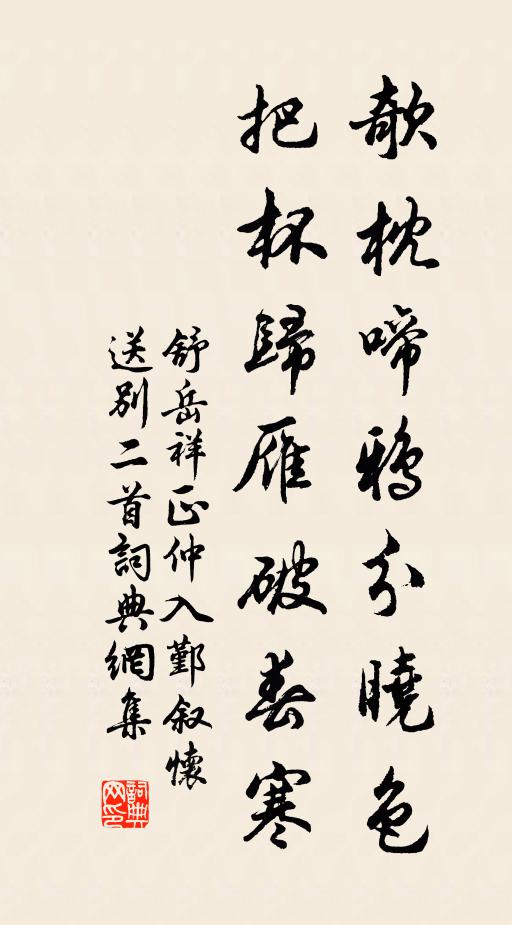 欹枕啼鴉分曉色
把杯歸雁破春寒
舒岳祥正仲入鄞叙懷
送別二首詞典網集
詞典
网印